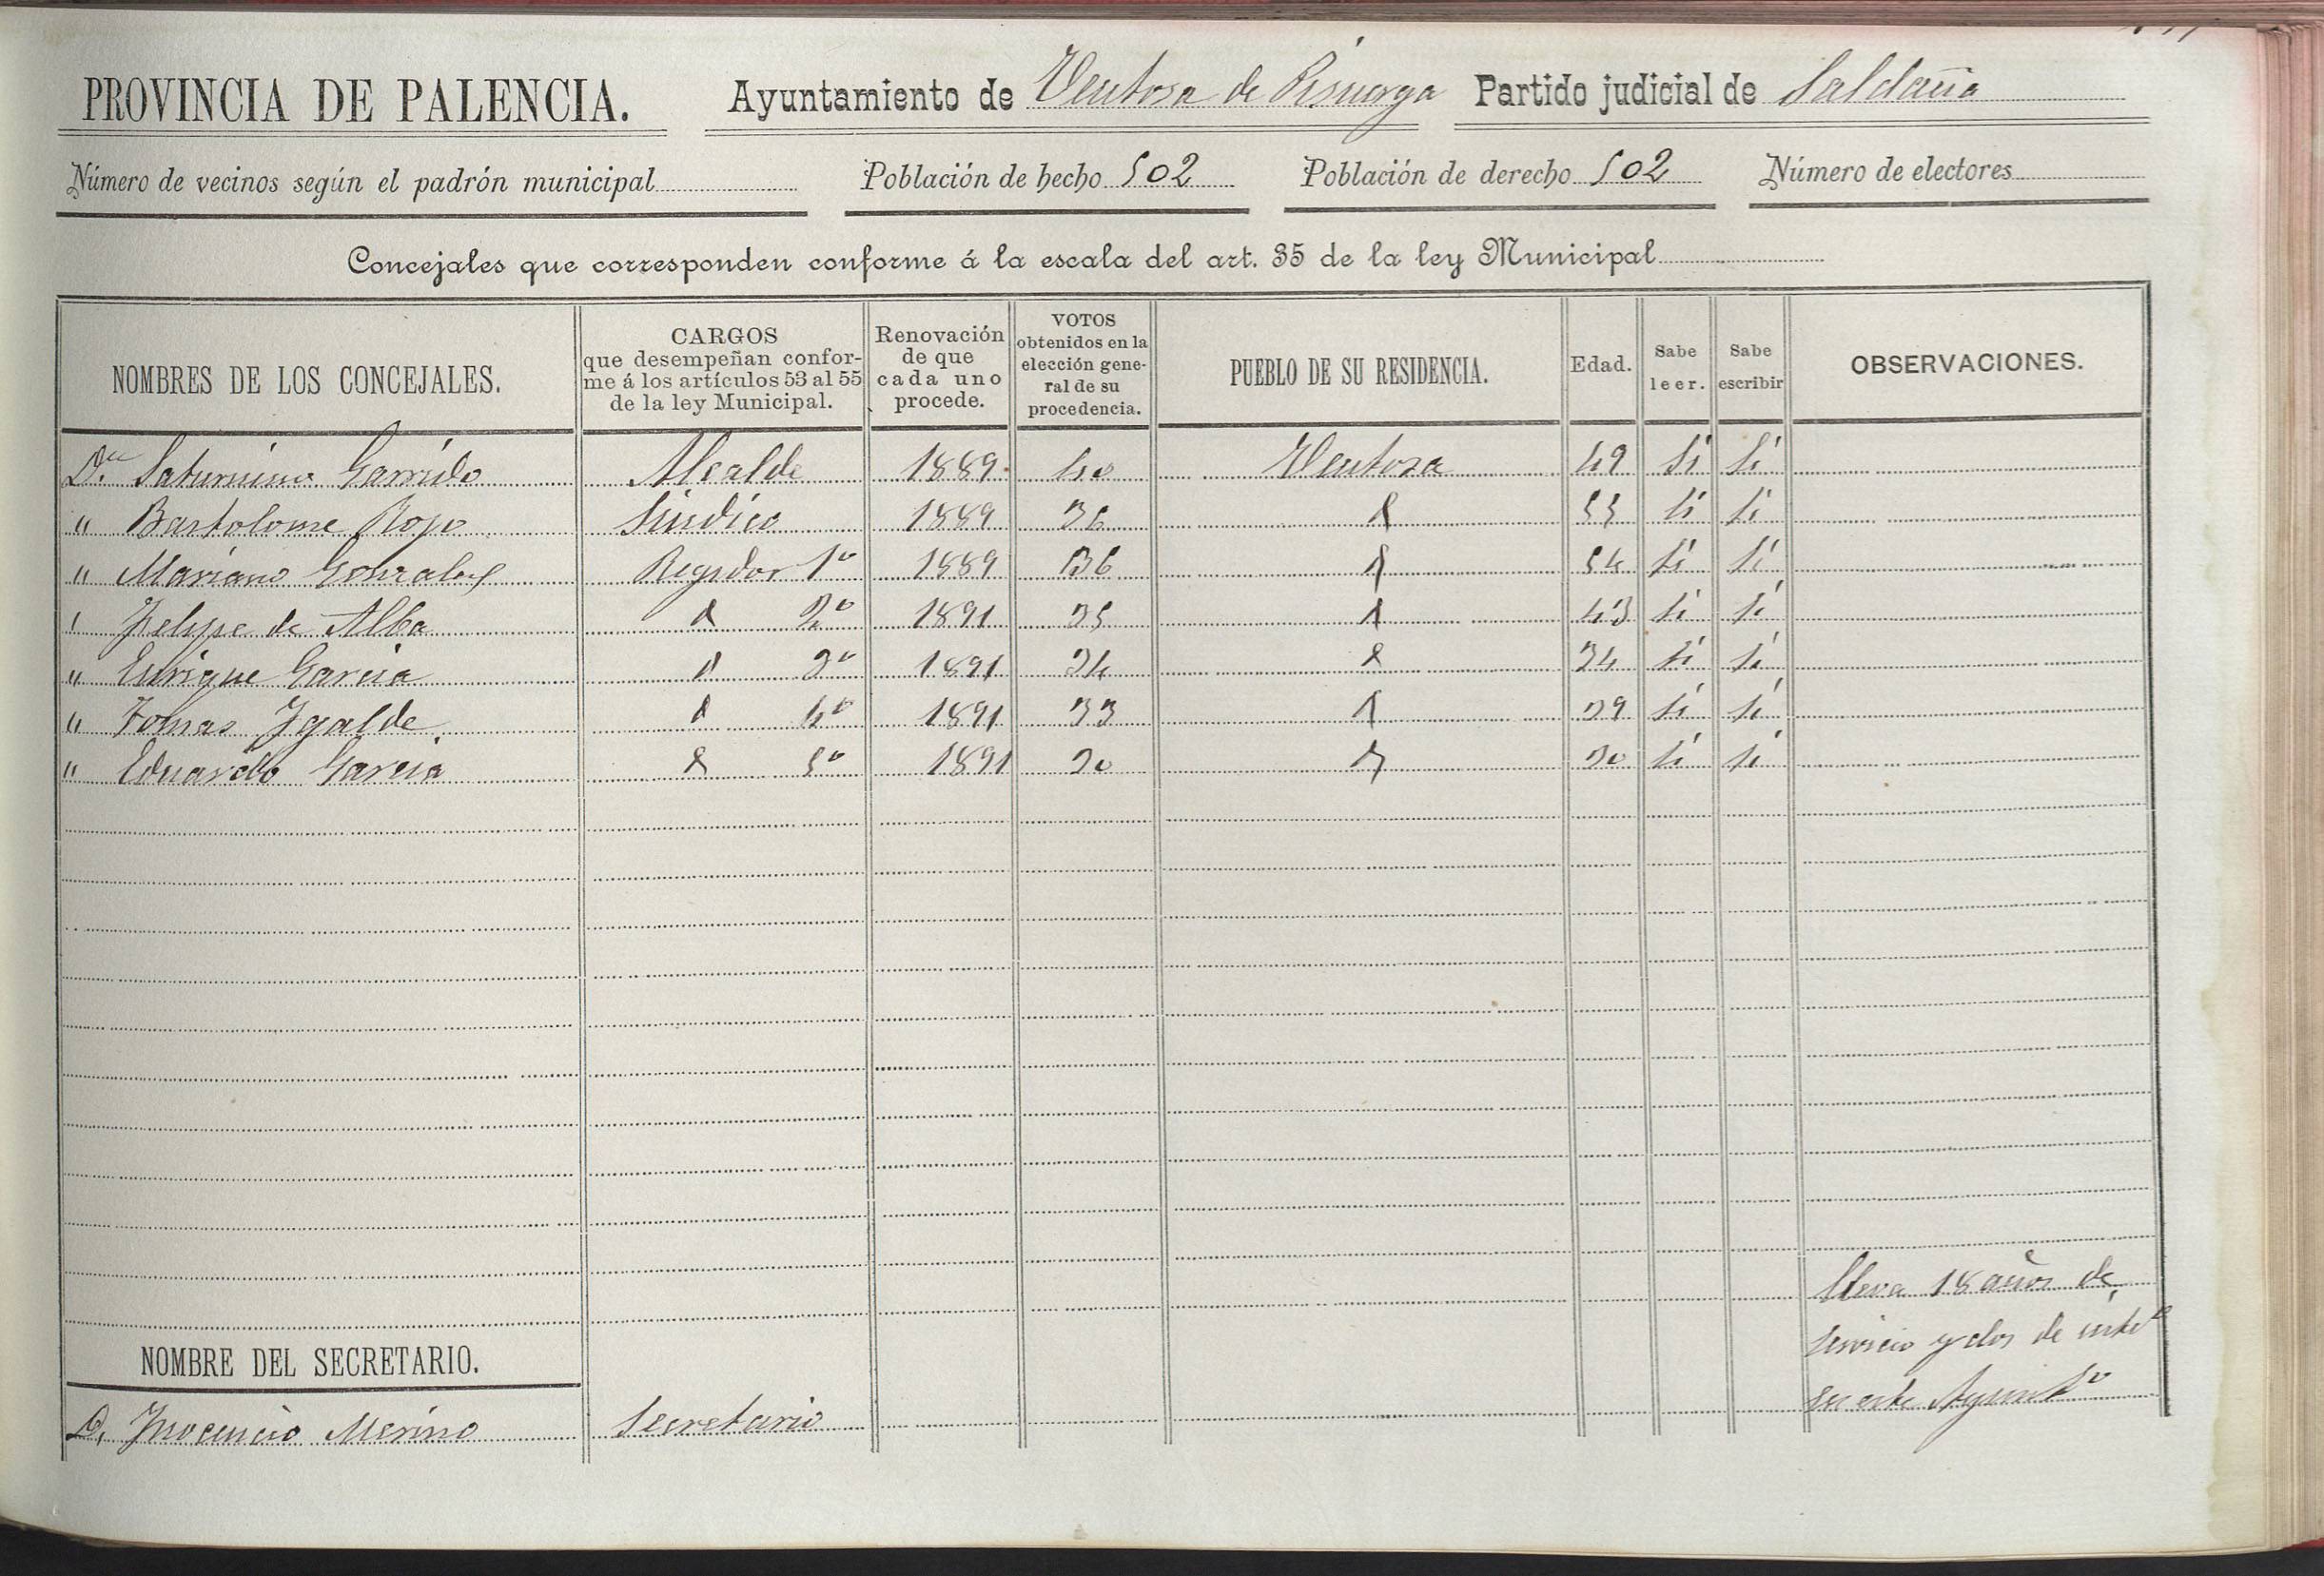 PROVINCIA DE PALENCIA. Ayuntamiento de Ventosa de Pisuerga Partido judicial de Saldaña
Número de vecinos según el padrón municipal Población de hecho 502 Población de derecho 502 Número de electores
Concejales que corresponden conforme á la escala del art. 35 de la ley Municipal
NOMBRES DE LOS CONCEJALES. CARGOS que desempeñan confor-me á los artículos 53 al 55 de la ley Municipal. Renovación de que cada uno procede. VOTOS obtenidos en la elección gene-ral de su procedencia. PUEBLO DE SU RESIDENCIA. Edad. Sabe leer. Sabe escribir OBSERVACIONES.
Dn Saturnino Garrido Alcalde 1889 40 Ventosa 49 Si Si
" Bartolome Rojo Sindico 1889 36 55 Si Si
" Mariano Gonzalez Regidor 1º 1889 36 54 Si Si
" Felipe de Alba 2º 1891 35 43 Si Si
" Enrique Garcia 3º 1891 34 34 Si Si
" Tomas Igalde 4º 1891 33 39 Si Si
" Eduardo Garcia 5º 1891 30 30 Si Si
lleva 18 años de
servicio y dos de
en este Ayuntº
NOMBRE DEL SECRETARIO.
D. Inocencio Merino Secretario